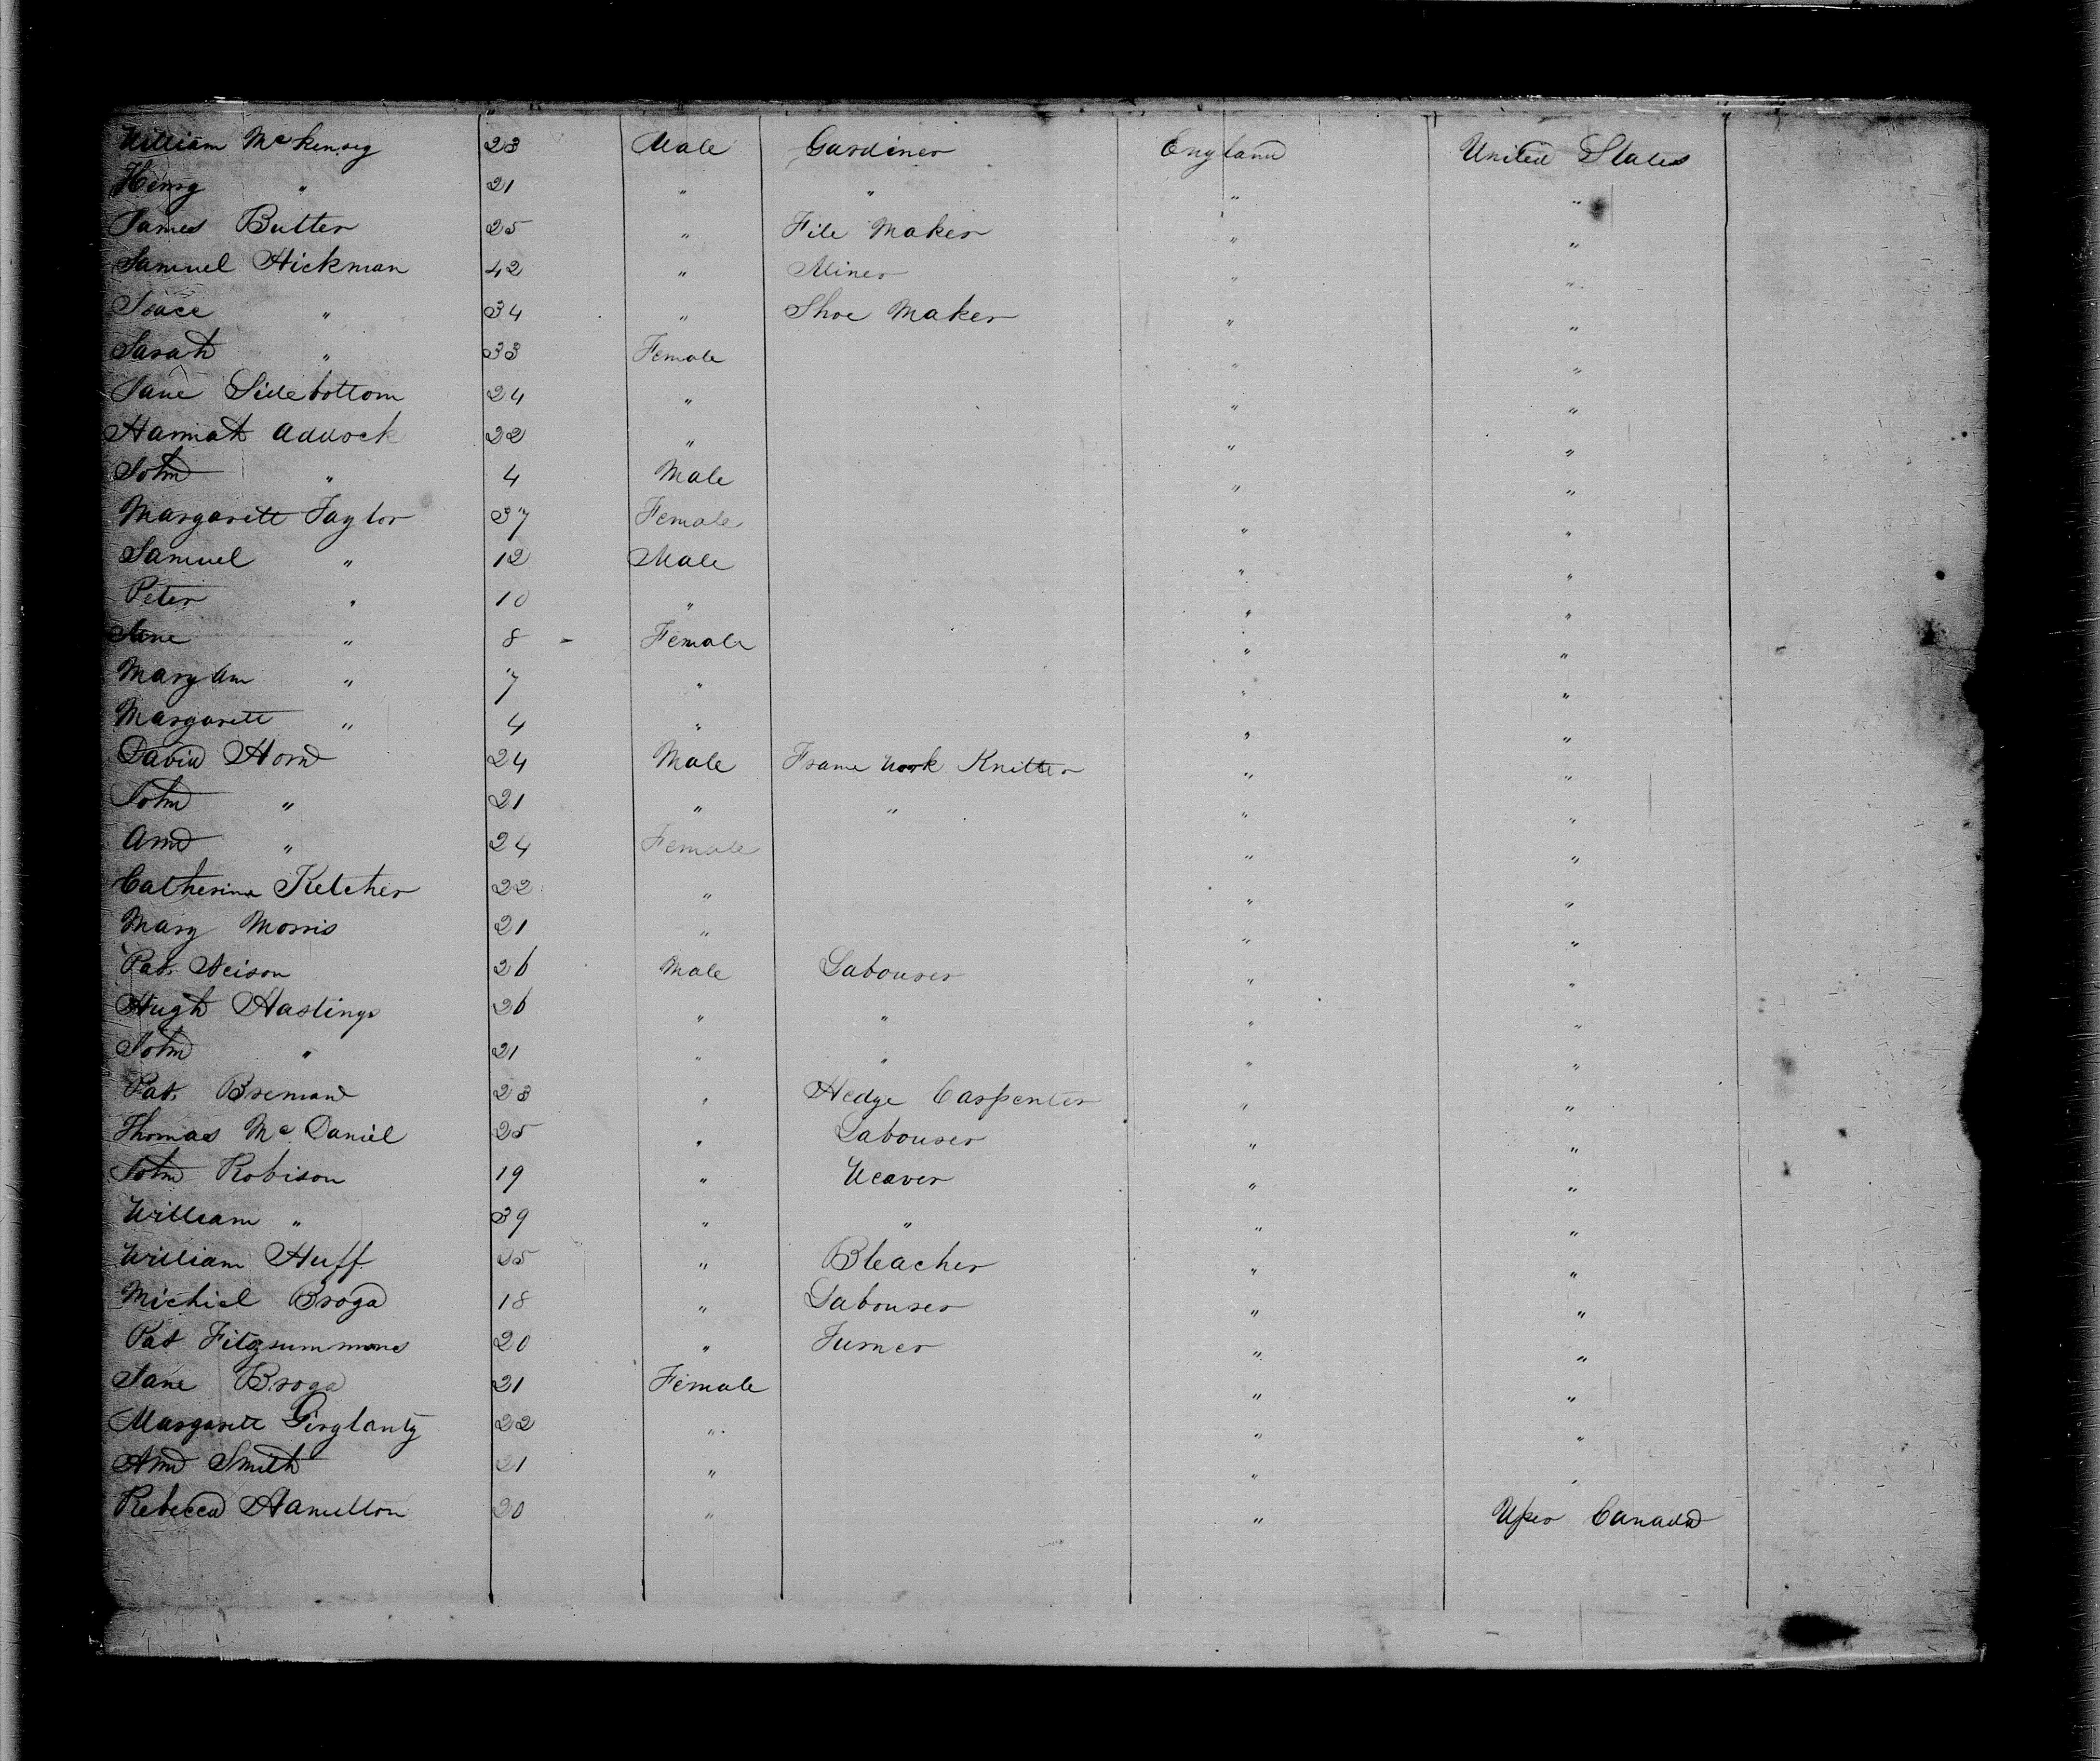 William McKensey 23 Male Gardiner England United States
Henry " 21 " " " "
James Butter 25 " File Maker " "
Samuel Hickman 42 " Miner " "
Isace " 34 " Shoe Maker " "
Sarah " 33 Female " "
Jane Sidebottom 24 " " "
Hannah Addock 22 " " "
John " 4 Male " "
Margarett Taylor 37 Female " "
Samuel " 12 Male " "
Peter " 10 " " "
Jane " 8 Female " "
Mary Ann " 7 " " "
Margarett " 4 " " "
David Horn 24 Male Frame Work Knitter " "
John " 21 " " " "
Ann " 24 Female " "
Catherine Kelcher 22 " " "
Mary Morris 21 " " "
Pat. Neison 26 Male Labourer " "
Hugh Hastings 26 " " " "
John " 21 " " " "
Pat. Brenian 23 " Hedge Carpenter " "
Thomas Mc Daniel 25 " Labourer " "
John Robison 19 " Weaver " "
William " 39 " " " "
William Huff 35 " Bleacher " "
Michiel Broga 18 " Labourer " "
Pat Fitzsummons 20 " Turner " "
Jane Broga 21 Female " "
Margarett 22 " " "
Ann Smith 21 " " "
Rebecca Hamilton 20 " " Uper Canada